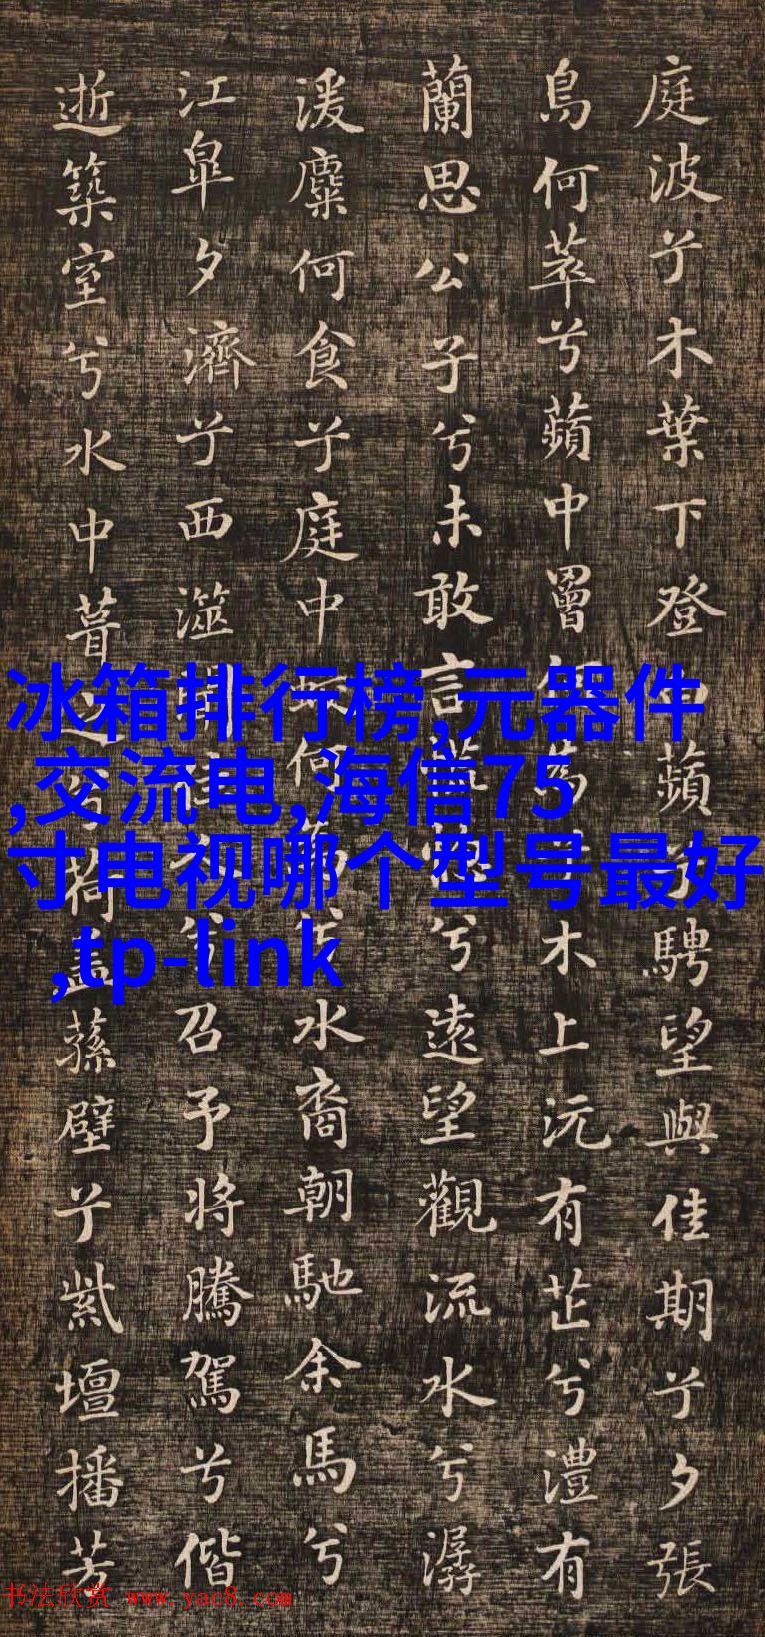 庭波兮木葉下登白蘋兮騁望與佳期兮夕張
鳥何萃兮蘋中罾何為兮木上沅有芷兮澧有
蘭思公子兮未敢言慌惚兮遠望觀流水兮潺
湲麋何食兮庭中何為兮水裔朝馳余馬兮
江皐夕濟兮西澨佳兮召予將騰駕兮偕
逝築室兮水中葺之兮荷蓋蓀壁兮紫壇播芳
冰箱排行榜,元器件
,交流电,海信75
寸电视哪个型号最好
,tp-link
书法欣赏 www.yac8.com